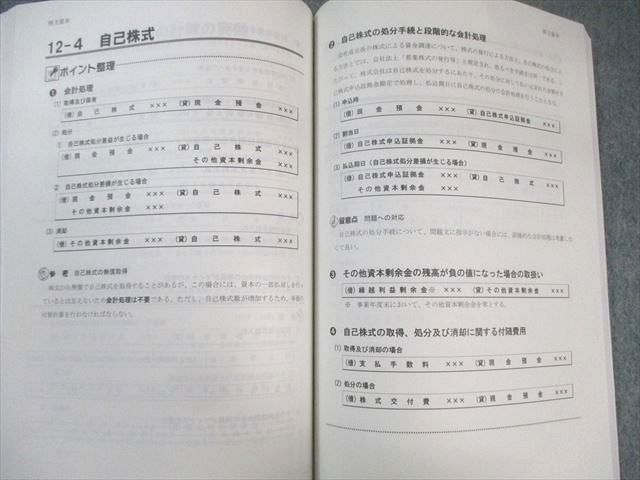 株主資本
12-4 自己株式
ポイント整理
❶ 会計処理
(1) 取得及び保有
(借) 自 己 株 式 ××× (貸) 現 金 預 金 ×××
(2) 処分
① 自己株式処分差益が生じる場合
(借) 現 金 預 金 ××× (貸) 自 己 株 式 ×××
その他資本剰余金 ×××
② 自己株式処分差損が生じる場合
(借) 現 金 預 金 ××× (貸) 自 己 株 式 ×××
その他資本剰余金 ×××
(3) 消却
(借) その他資本剰余金 ××× (貸) 自 己 株 式 ×××
参 考 自己株式の無償取得
株主から無償で自己株式を取得することがあるが、この場合には、資本の一部払戻しを行
っているとは言えないため会計処理は不要である。ただし、自己株式数が増加するため、単価の
付替計算を行わなければならない。
株主資本
❷ 自己株式の処分手続と段階的な会計処理
会社成立後の株式による資金調達について、株式の発行による方法と、自己株式の処分によ
る方法とでは、会社法上「募集株式の発行等」と
(1) 申込時
(借) 現 金 預 金 ××× (貸) 自己株式申込証拠金 ×××
(2) 割当日
(借) 自己株式申込証拠金 ××× (貸) 現 金 預 金 ×××
(3) 払込期日（自己株式処分差損が生じる場合）
(借) 自己株式申込証拠金 ××× (貸) 自 己 株 式 ×××
その他資本剰余金 ×××
留意点 問題への対応
自己株式の処分手続について、問題文に指示がない場合には、段階的な会計処理は考慮しな
くて良い。
❸ その他資本剰余金の残高が負の値になった場合の取扱い
(借) 繰越利益剰余金※ ××× (貸) その他資本剰余金 ×××
※ 事業年度末において、その他資本剰余金を零とする。
❹ 自己株式の取得、処分及び消却に関する付随費用
(1) 取得及び消却の場合
(借) 支 払 手 数 料 ××× (貸) 現 金 預 金 ×××
(2) 処分の場合
(借) 株 式 交 付 費 ××× (貸) 現 金 預 金 ×××